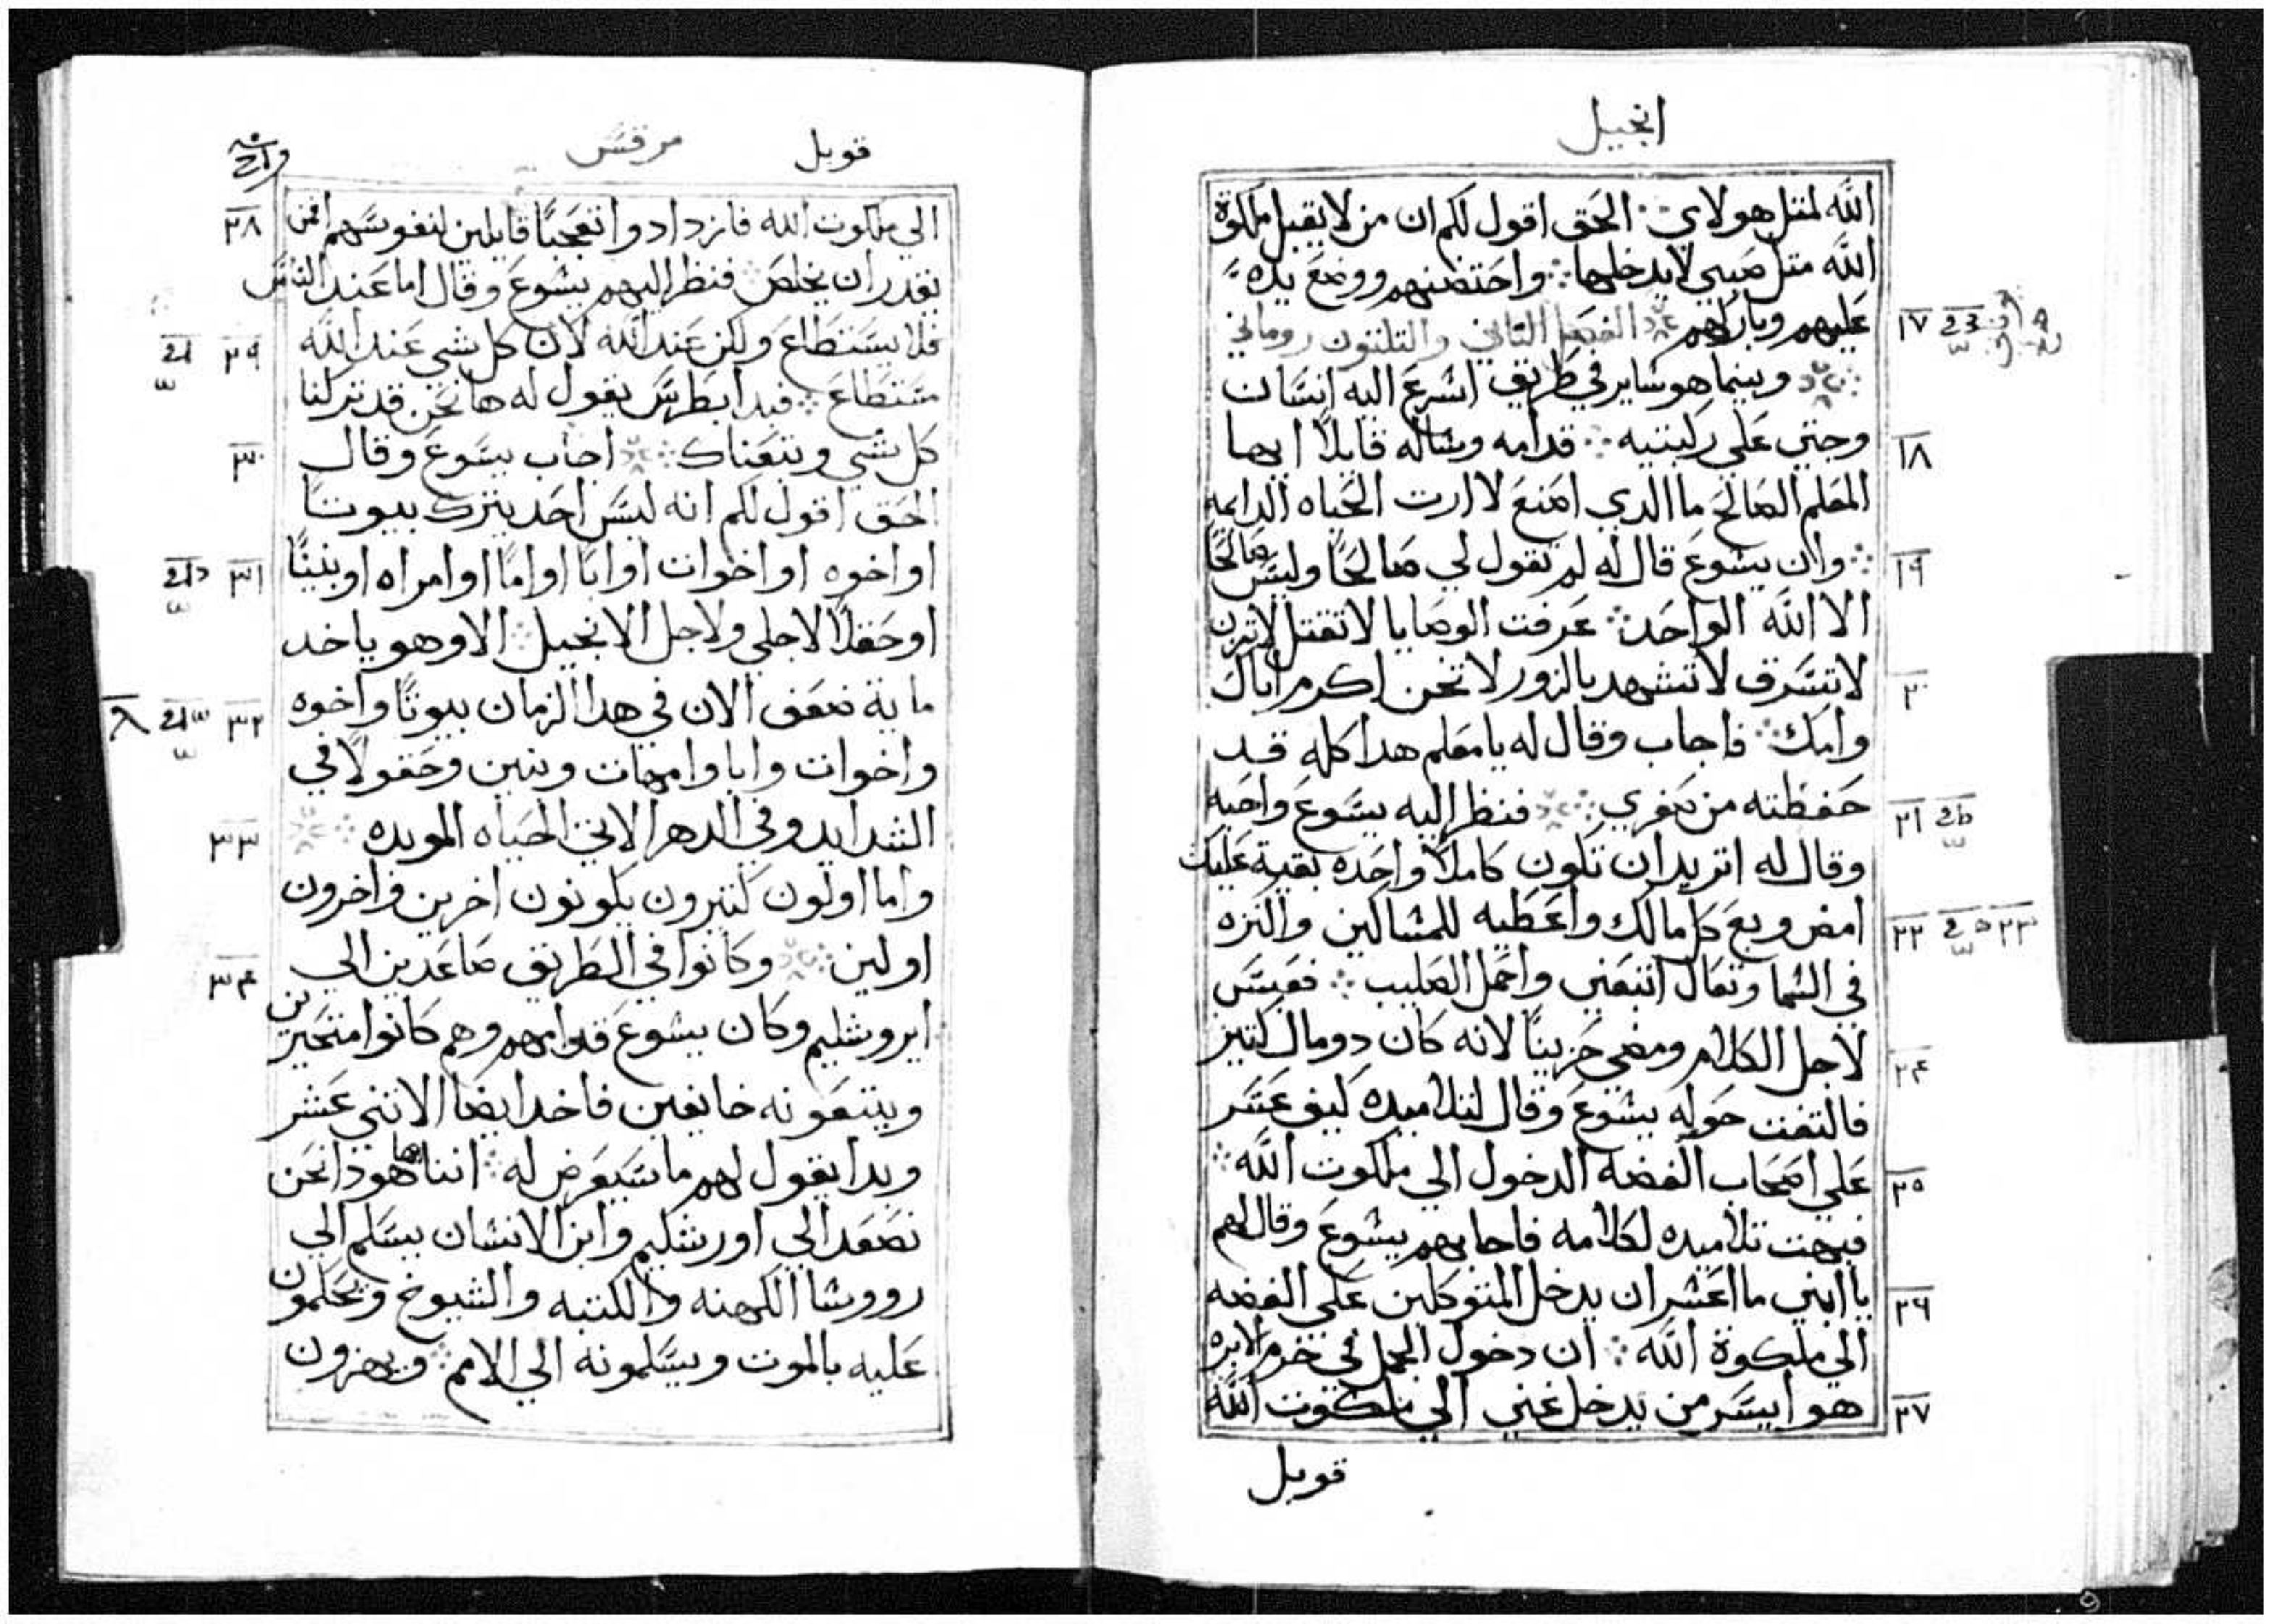 انجيل
الله لمتل هولاي ∴ الحق اقول لكم ان من لا يقبل ملكوة
الله متل صبي لا يدخلها ∴ واحتضنهم ووضع يده
١٧ عليهم وباركهم الفصل التاني والتلتون روماني
وبينما هو ساير في طريق اسرع اليه انسان
١٨ وجتي علي ركبتيه ∴ قدامه وساله قايلاً ايها
المعلم الصالح ما الدي اصنع لاارت الحياه الدايمه
١٩ ∴ وان يسوع قال له لم تقول لي صالحًا وليس صالحًا
الا الله الواحد ∴ عرفت الوصايا لا تقتل لا تزن
٢٠ لا تسرق لا تشهد بالزور لا تخن اكرم اباك
وامك ∴ فاجاب وقال له يا معلم هدا كله قد
٢١ حفظته من صغري ∴ فنظر اليه يسوع واحبه
وقال له اتريد ان تكون كاملاً واحده بقية عليك
٢٢ امض وبع كل مالك واعطيه للمساكين والنزه
في السما وتعال اتبعني واحمل الصليب ∴ فعبس
٢٤ لاجل الكلام ومضي حزينًا لانه كان دو مال كتير
فالتفت حوله يسوع وقال لتلاميده كيف عسر
٢٥ علي اصحاب الفضه الدخول الي ملكوت الله ∴
فبهت تلاميده لكلامه فاجابهم يسوع وقال لهم
٢٦ يا ابني ما اعسر ان يدخل المتوكلين علي الفضه
الي ملكوة الله ∴ ان دخول الجمل في خرم الابره
٢٧ هو ايسر من يدخل غني الي ملكوت الله
قوبل
قوبل مرقس
٢٨ الي ملكوت الله فازدادوا تعجبًا قايلين لنفوسهم افمن
يقدر ان يخلص ∴ فنظر اليهم يسوع وقال اما عند الناس
٢٩ فلا يستطاع ولكن عند الله لان كل شي عند الله
مستطاع ∴ فبدا بطرس يقول له ها نحن قد تركنا
٣٠ كل شي وتبعناك ∴ اجاب يسوع وقال
الحق اقول لكم انه ليس احد يترك بيوتا
٣١ او اخوه او اخوات او ابًا او امًا او امراه او بنينًا
او حقلاً لاجلي ولاجل الانجيل ∴ الا وهو ياخد
٣٢ ماية ضعف الان في هدا الزمان بيوتًا واخوه
واخوات وابا وامهات وبنين وحقولاً في
٣٣ الشدايد وفي الدهر الاتي الحياه الموبده ∴
واما اولون كتيرون يكونون اخرين واخرون
٣٤ اولين ∴ وكانوا في الطريق صاعدين الي
ايروشليم وكان يسوع قدامهم وهم كانوا متحيرين
ويتبعونه خايفين فاخد ايضا الاتني عشر
وبدا يقول لهم ما سيعرض له ∴ اننا ها هودا نحن
نصعد الي اورشليم وابن الانسان يسلم الي
رووسا الكهنه والكتبه والشيوخ ويحكمون
عليه بالموت ويسلمونه الي الامم ∴ ويهزون